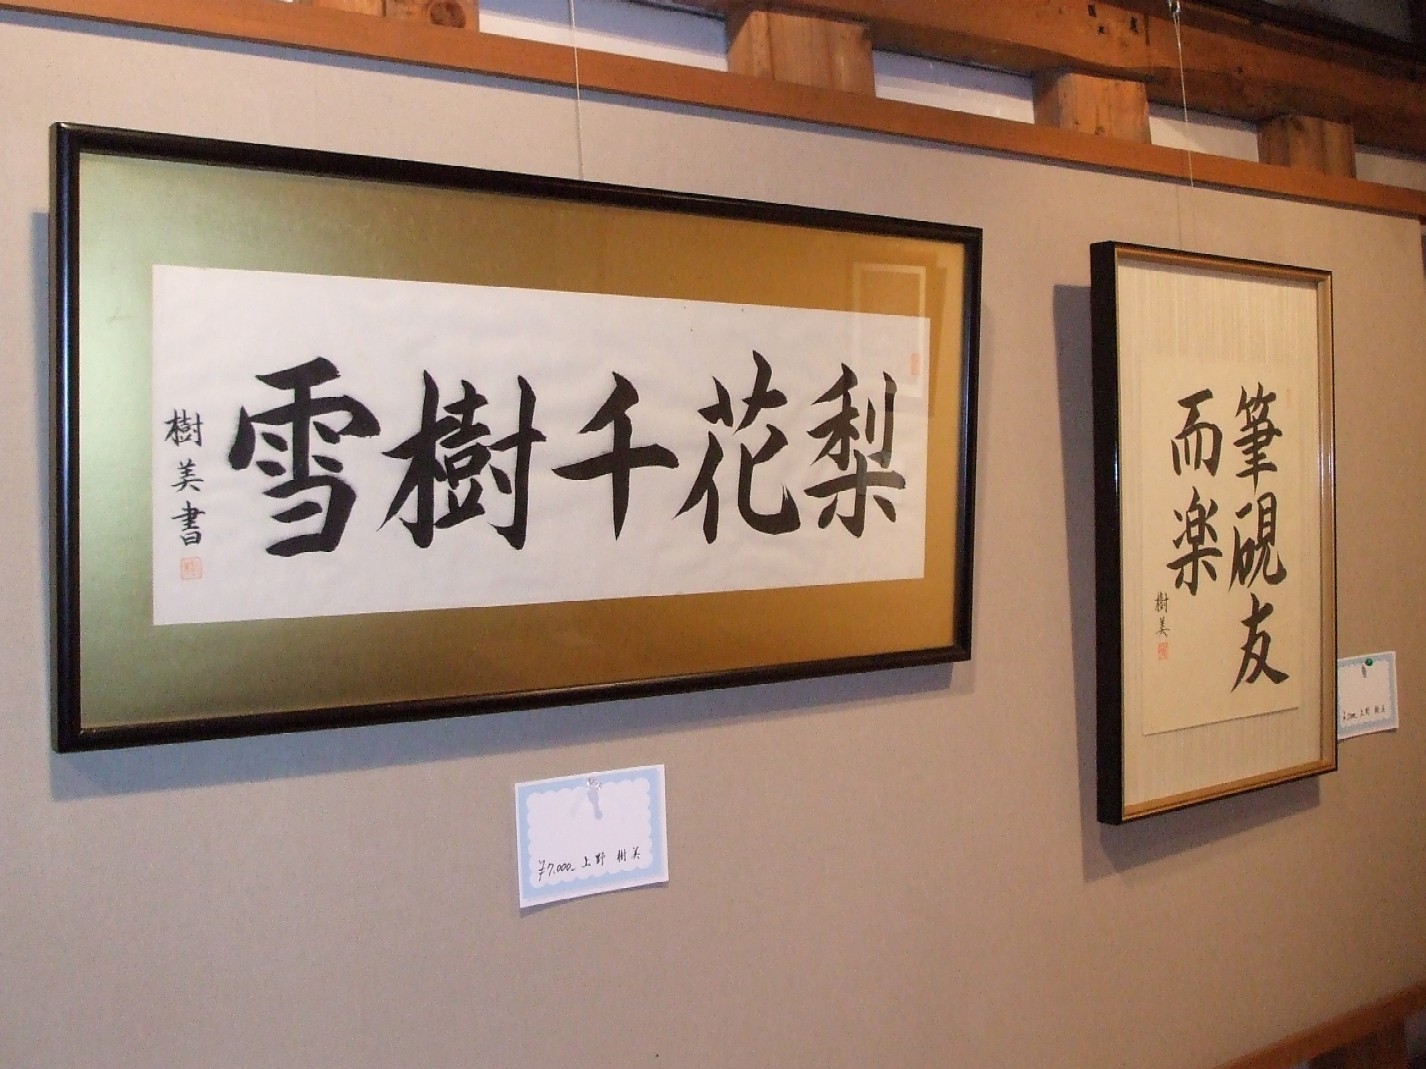 梨花千樹雪
樹美書
筆硯友
而楽
樹美
¥7,000- 上野 樹美
上野 樹美